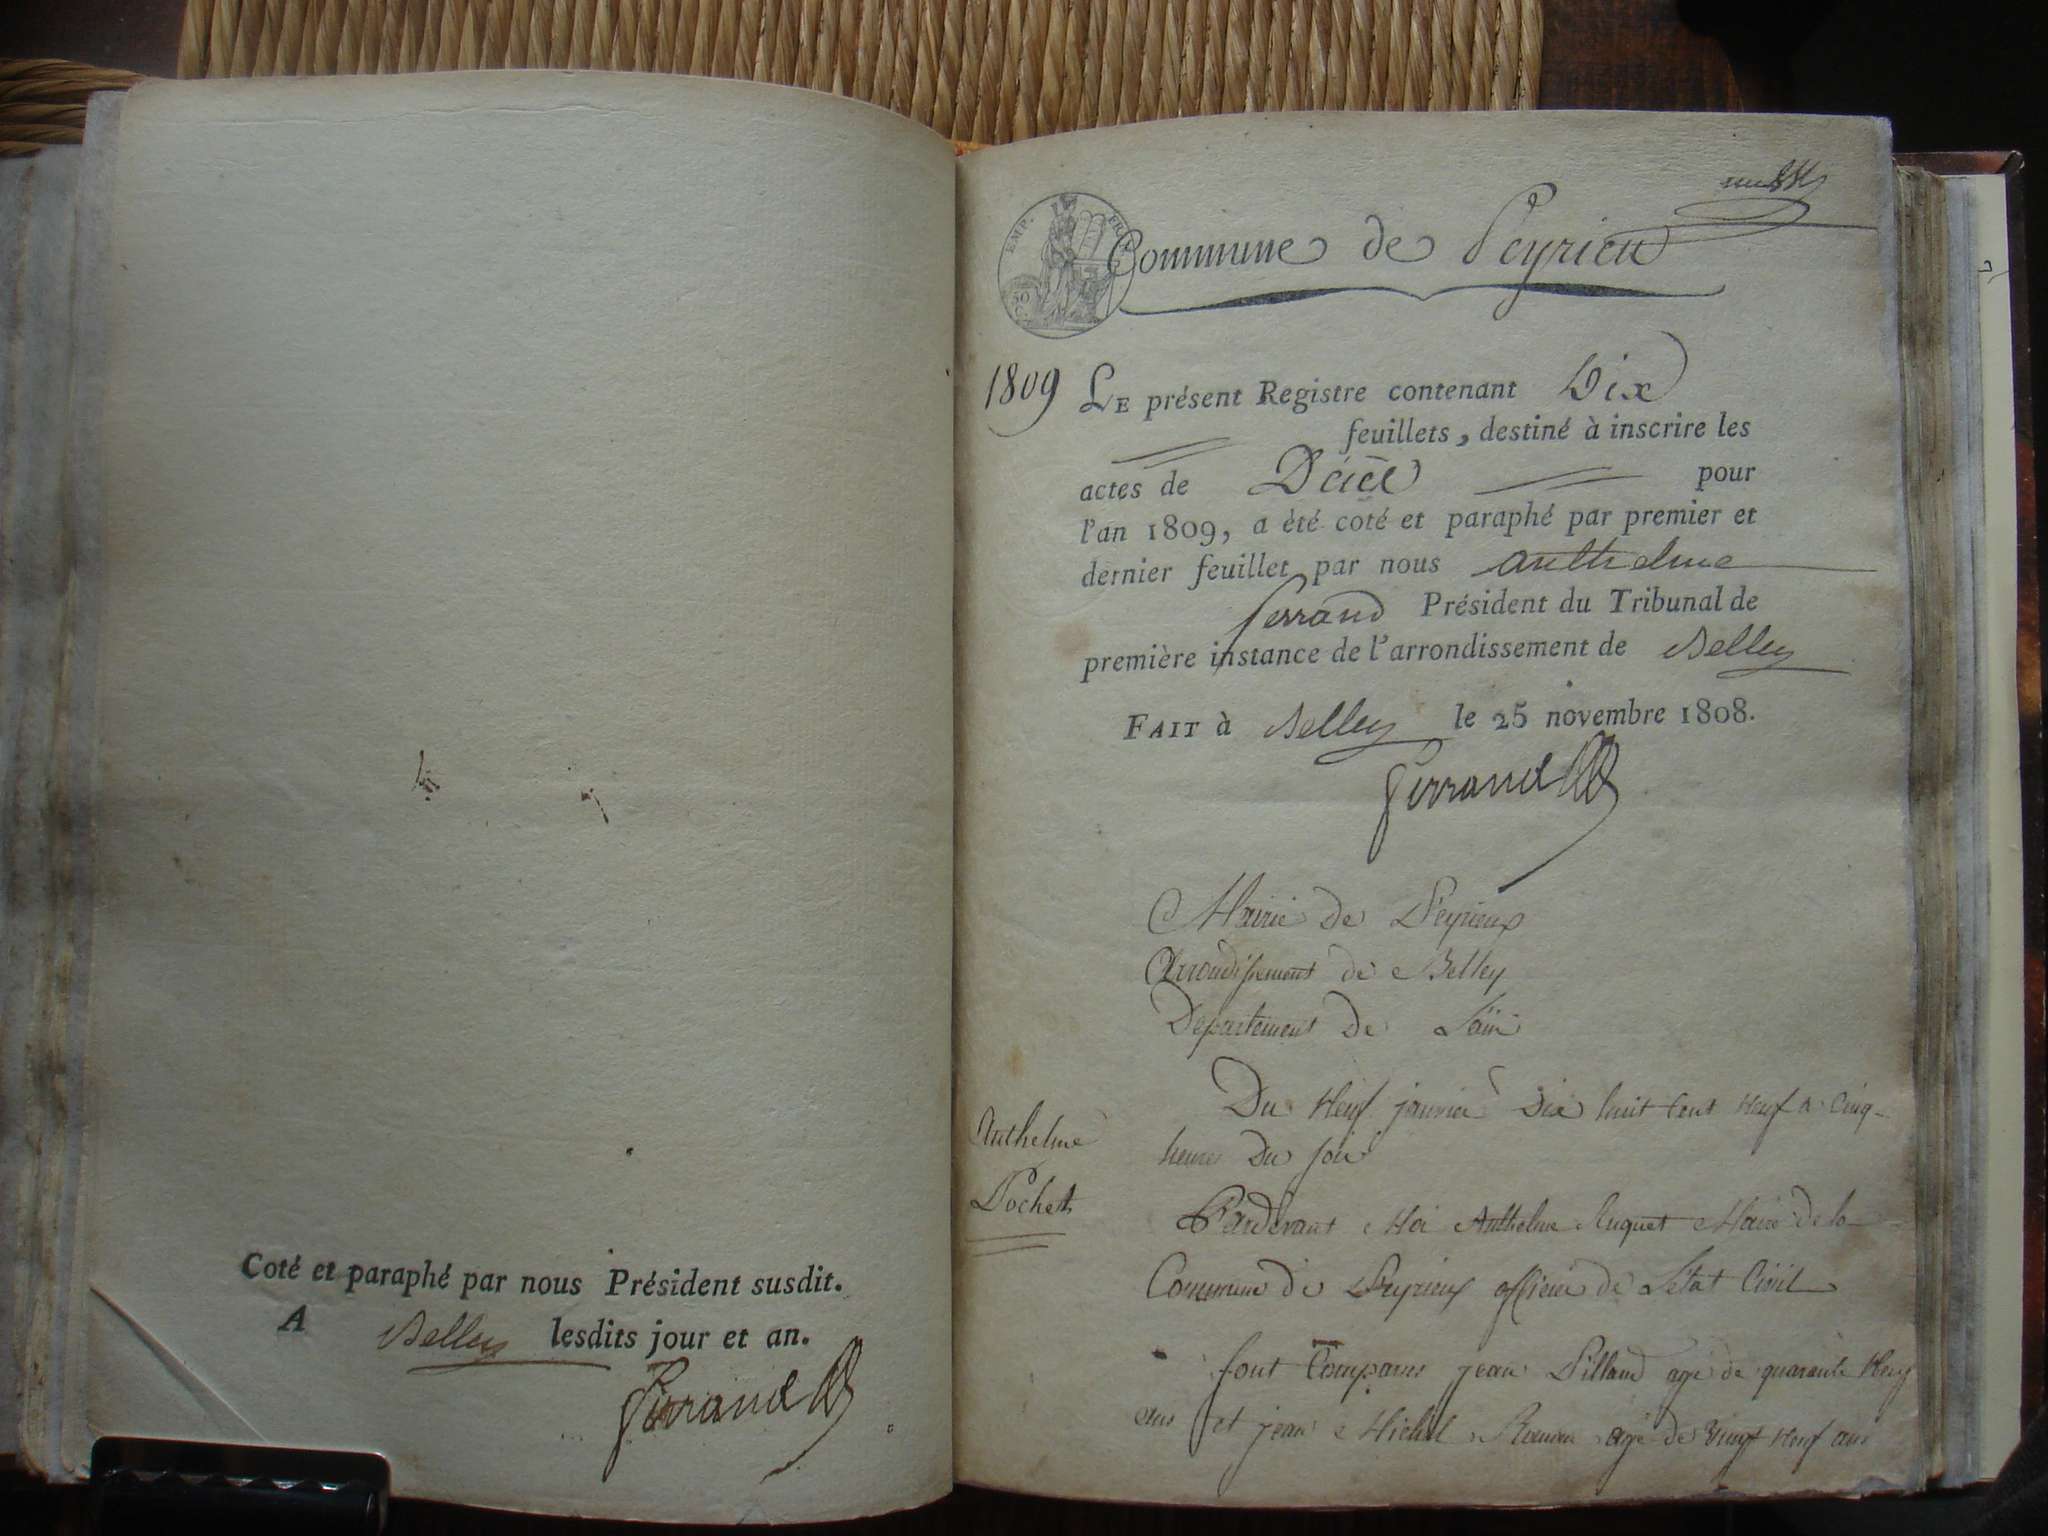 Coté et paraphé par nous Président susdit.
A Belley lesdits jour et an.
Ferrand
EMP. FR
50
C.
Commune de Peyrieu
1809
LE présent Registre contenant Dix
feuillets, destiné à inscrire les
actes de Décès pour
l'an 1809, a été coté et paraphé par premier et
dernier feuillet par nous anthelme
ferrand Président du Tribunal de
première instance de l'arrondissement de Belley
FAIT à Belley le 25 novembre 1808.
Ferrand
Mairie de Peyrieux
Arrondissement de Belley
Departement de Lain
Anthelme
Pochet
Du Neuf janvier Dix huit Cent Neuf a Cinq
heures Du soir
Pardevant Moi Anthelme Ruquet Maire de la
Commune de Peyrieux officier de Létat Civil
sont Comparus jean Pilland agé de quarante Neuf
ans et jean Michel agé de vingt Neuf ans